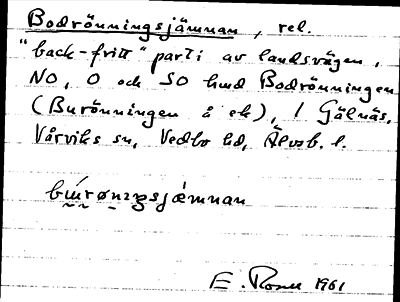 Bodrönningsjämnan, rel.
"back-fritt" parti av landsvägen,
NO, O och SO hmd Bodrönningen
(Burönningen å ek), / Gälnäs,
Vårviks sn, Vedbo hd, Älvsb. l.
E. Rosell 1961